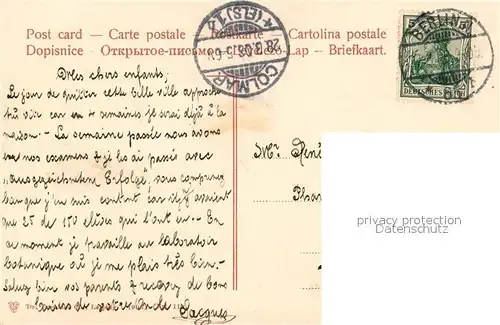 Post card - Carte postale - Postkarte - Cartolina postale
Dopisnice - Открытое письмо - Lap - Briefkaart.
COLMAR
(ELS) 1
28.8.08. 5-6
BERLIN
DEUTSCHES REICH
Mes chers enfants,
Le jour de quitter cette belle ville approche
tu vois car en 4 semaines je serai déjà à la
maison. - La semaine passée nous avons
eu nos examens & je les ai passés avec
"ausgezeichnetem Erfolge", vous comprenez
que j'en suis content car il y avaient
que 25 de 150 élèves qui l'ont eu. - En
ce moment je travaille au laboratoire
botanique où je me plais très bien. -
Saluez bien vos parents & recevez de bons
baisers de votre oncle
Jacques
Mr René
Phar
privacy protection
Datenschutz